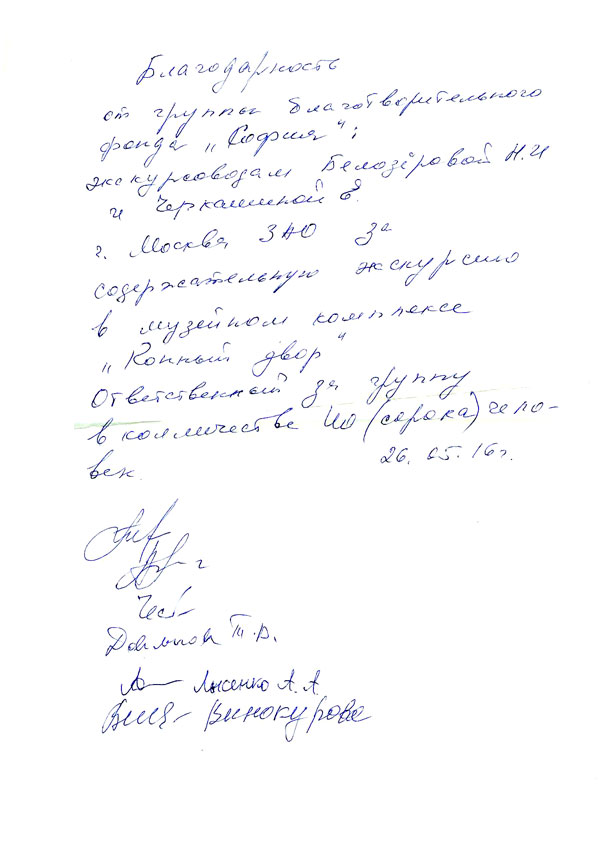 Благодарность
от группы благотворительного
фонда „София":
экскурсоводам Белозёровой Н.И
и Черкашиной Е.
г. Москва ЗАО за
содержательную экскурсию
в музейном комплексе
„Конный двор"
Ответственный за группу
в колличестве 40 (сорока) чело-
век.
26.05.16г.
Т.В.
Лысенко А.А
Винокурова